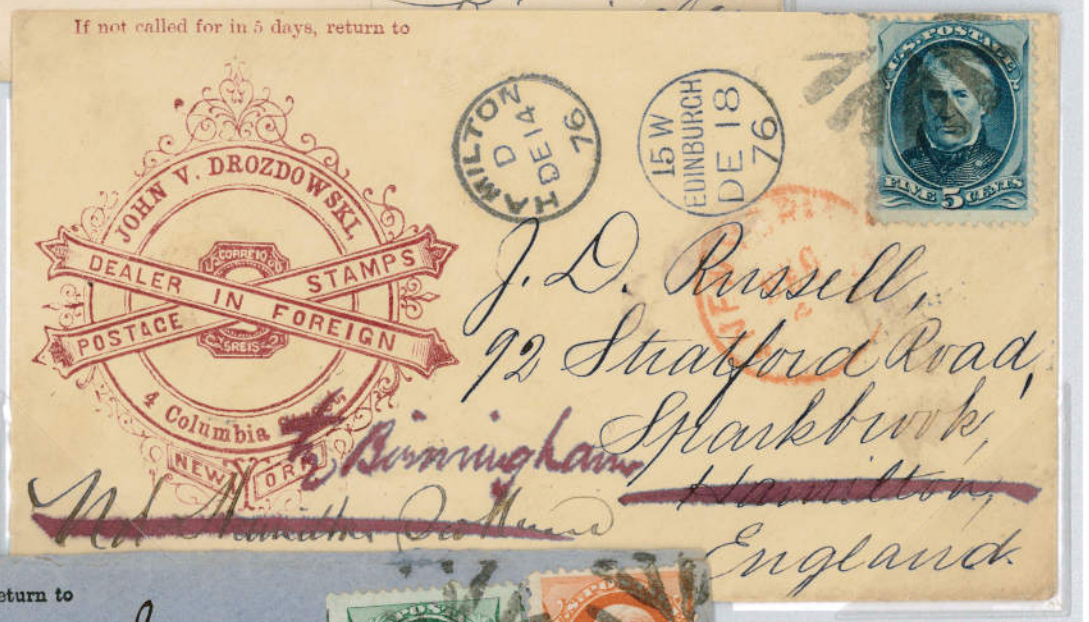 If not called for in 5 days, return to
JOHN V. DROZDOWSKI,
DEALER IN FOREIGN
POSTAGE STAMPS
CORREIO
5 REIS
4 Columbia
NEW YORK
HAMILTON
D
DE 14
76
15 W
EDINBURGH
DE 18
76
U.S. POSTAGE
FIVE 5 CENTS
J. D. Russell,
92 Stratford Road,
Sparkbrook,
Hamilton,
England.
Birmingham
Not Hamilton Scotland
eturn to